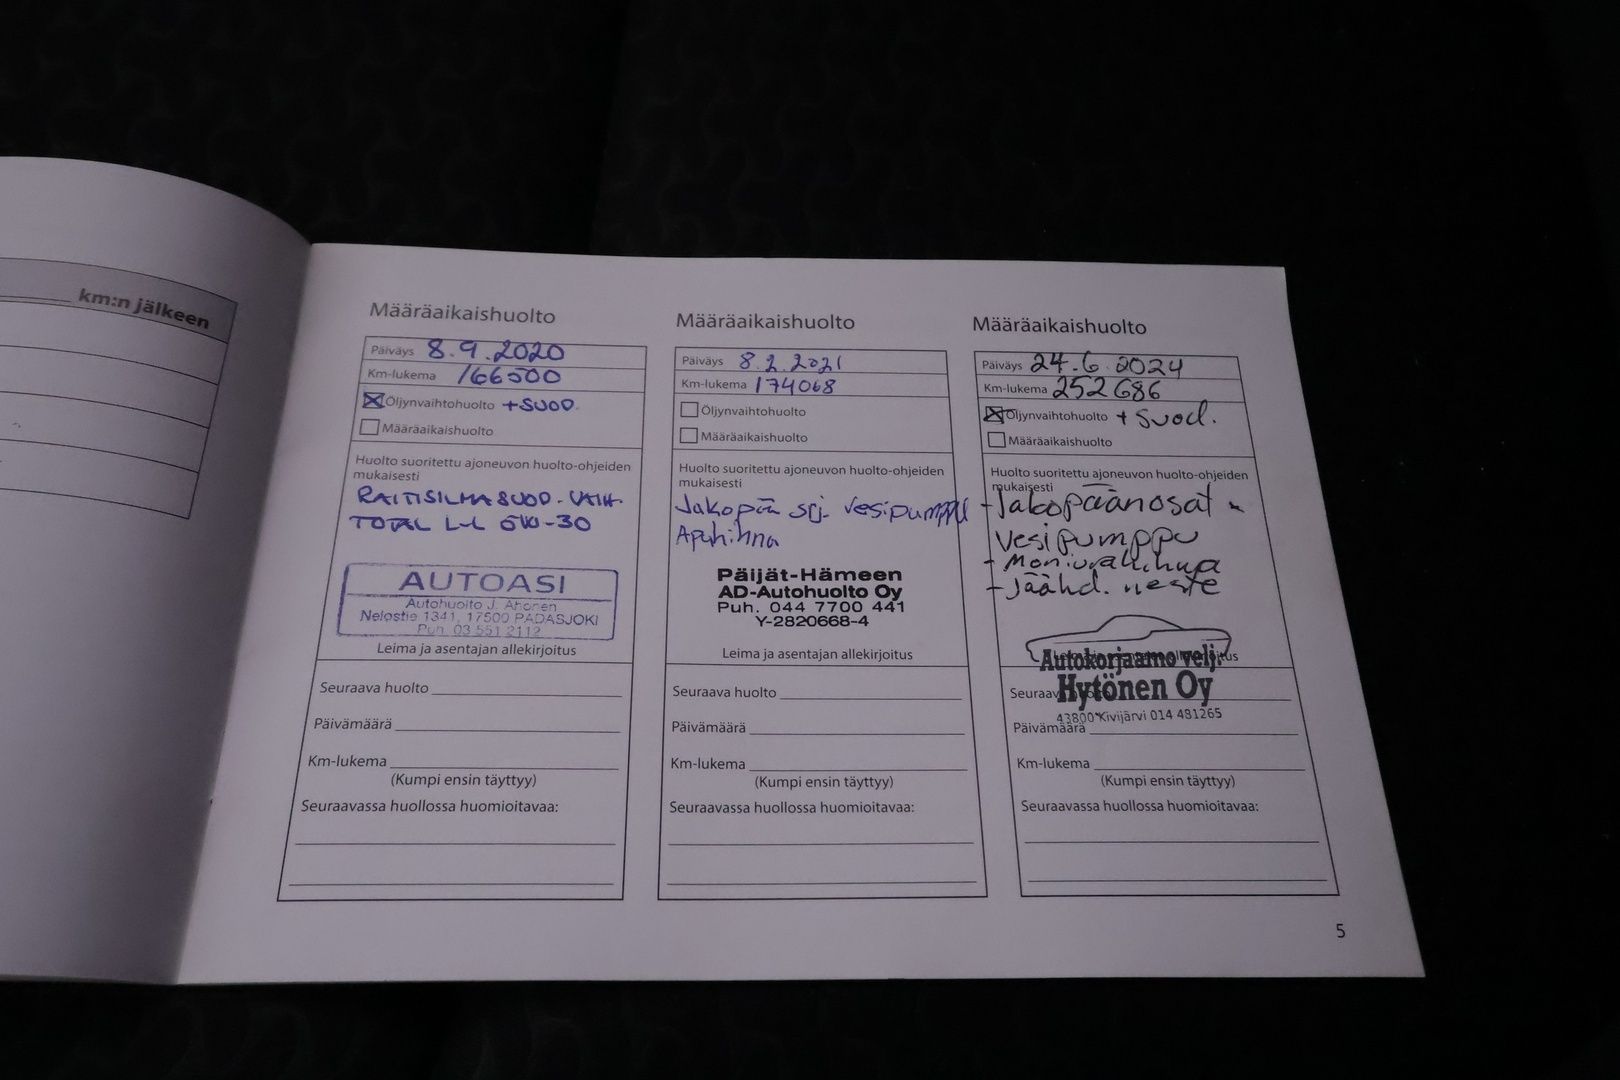 km:n jälkeen
Määräaikaishuolto
Päiväys 8.9.2020
Km-lukema 166500
Öljynvaihtohuolto +SUOD.
Määräaikaishuolto
Huolto suoritettu ajoneuvon huolto-ohjeiden
mukaisesti
RAITISILMASUOD. VAIH.
TOTAL L-L 5W-30
AUTOASI
Autohuolto J. Ahonen
Nelostie 1341, 17500 PADASJOKI
Puh. 03 551 2112
Leima ja asentajan allekirjoitus
Seuraava huolto
Päivämäärä
Km-lukema
(Kumpi ensin täyttyy)
Seuraavassa huollossa huomioitavaa:
Määräaikaishuolto
Päiväys 8.2.2021
Km-lukema 174068
Öljynvaihtohuolto
Määräaikaishuolto
Huolto suoritettu ajoneuvon huolto-ohjeiden
mukaisesti
Jakopää srj. vesipumppu
Apuhihna
Päijät-Hämeen
AD-Autohuolto Oy
Puh. 044 7700 441
Y-2820668-4
Leima ja asentajan allekirjoitus
Seuraava huolto
Päivämäärä
Km-lukema
(Kumpi ensin täyttyy)
Seuraavassa huollossa huomioitavaa:
Määräaikaishuolto
Päiväys 24.6.2024
Km-lukema 252686
Öljynvaihtohuolto + suod.
Määräaikaishuolto
Huolto suoritettu ajoneuvon huolto-ohjeiden
mukaisesti
- Jakopäänosat -
vesipumppu
- Moniurahihna
- Jäähd. neste
Autokorjaamo velj.
Hytönen Oy
43800 Kivijärvi 014 481265
Seuraava huolto
Päivämäärä
Km-lukema
(Kumpi ensin täyttyy)
Seuraavassa huollossa huomioitavaa:
5